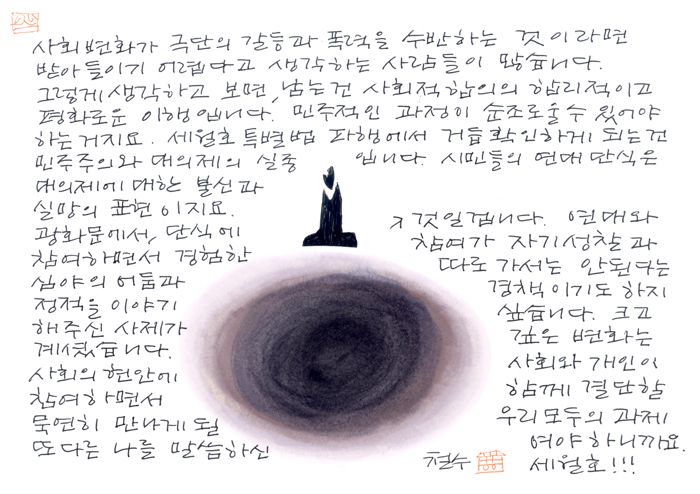 사회변화가 극단의 갈등과 폭력을 수반하는 것이라면
받아들이기 어렵다고 생각하는 사람들이 많습니다.
그렇게 생각하고 보면, 남는건 사회적합의의 합리적이고
평화로운 이행입니다. 민주적인 과정이 순조로울수 있어야
하는거지요. 세월호특별법 파행에서 거듭확인하게 되는건
민주주의와 대의제의 실종입니다. 시민들의 연대단식은
대의제에 대한 불신과
실망의 표현이지요.
광화문에서, 단식에
참여하면서 경험한
심야의 어둠과
정적을 이야기
해주신 사제가
계셨습니다.
사회의 현안에
참여하면서
묵연히 만나게 될
또다른 나를 말씀하신
것일겁니다. 연대와
참여가 자기성찰과
따로 가서는 안된다는
경책이기도 하지
싶습니다. 크고
깊은 변화는
사회와 개인이
함께 결단할
우리 모두의 과제
여야 하니까요.
세월호!!!
철수